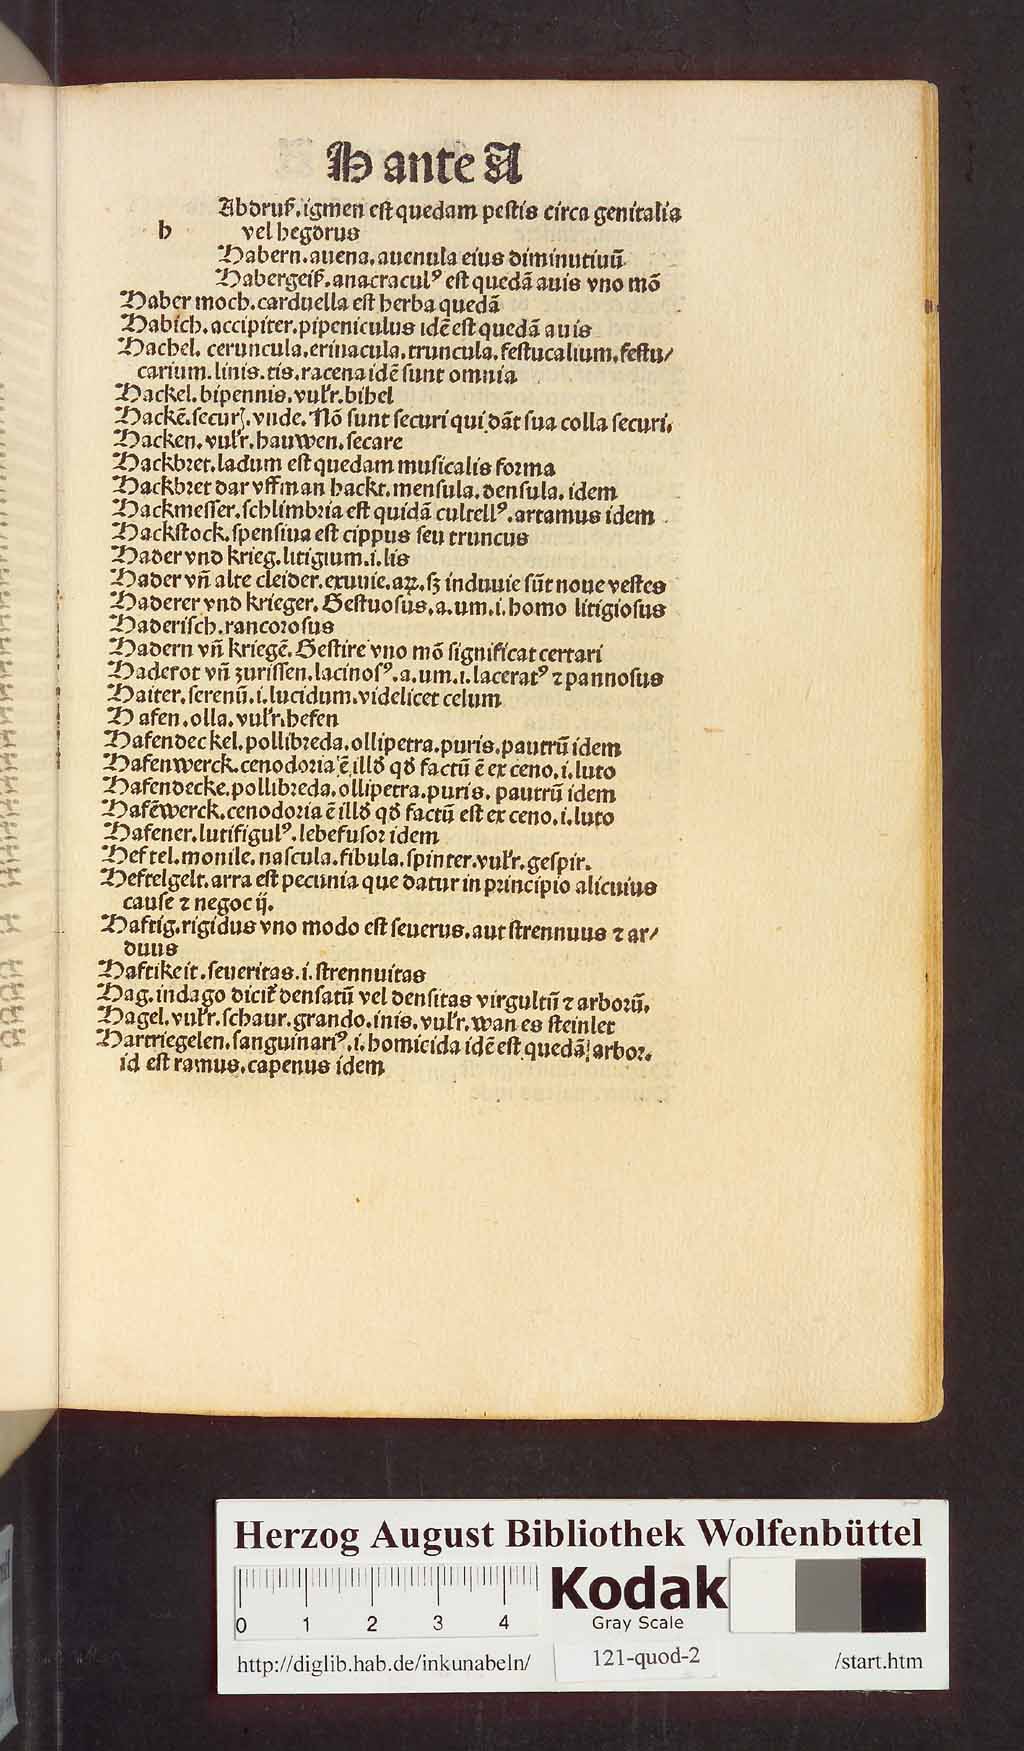 H ante A
Abdruß. igmen est quedam pestis circa genitalia
h vel hegdrus
Habern. auena. auenula eius diminutiuū
Habergeiß. anacraculꝰ est quedā auis vno mō
Haber moch. carduella est herba quedā
Habich. accipiter. pipeniculus idē est quedā auis
Hachel. ceruncula. erinacula. truncula. festucalium. festu/
carium. linis. tis. racena idē sunt omnia
Hackel. bipennis. vulr̄. bihel
Hackē. securꝭ. vnde. Nō sunt securi qui dāt sua colla securi.
Hacken. vulr̄. hauwen. secare
Hackbret. ladum est quedam musicalis forma
Hackbret dar vffman hackt. mensula. densula. idem
Hackmesser. schlimbria est quidā cultellꝰ. artamus idem
Hackstock. spensiua est cippus seu truncus
Hader vnd krieg. litigium. i. lis
Hader vñ alte cleider. exuuie. aꝝ. sꝫ induuie sūt noue vestes
Haderer vnd krieger. Gestuosus. a. um. i. homo litigiosus
Haderisch. rancorosus
Hadern vñ kriegē. Gestire vno mō significat certari
Haderot vñ zurissen. lacinosꝰ. a. um. i. laceratꝰ ⁊ pannosus
Haiter. serenū. i. lucidum. videlicet celum
Hafen. olla. vulr̄. hefen
Hafendeckel. pollibreda. ollipetra. puris. pautrū idem
Hafenwerck. cenodoria ē illđ qđ factū ē ex ceno. i. luto
Hafendecke. pollibreda. ollipetra. puris. pautrū idem
Hafēwerck. cenodoria ē illđ qđ factū est ex ceno. i. luto
Hafener. lutifigulꝰ. lebefusor idem
Heftel. monile. nascula. fibula. spinter. vulr̄. gespir.
Heftelgelt. arra est pecunia que datur in principio alicuius
cause ⁊ negocij.
Haftig. rigidus vno modo est seuerus. aut strennuus ⁊ ar/
duus
Haftikeit. seueritas. i. strennuitas
Hag. indago dicit᷑ densatū vel densitas virgultū ⁊ arborū.
Hagel. vulr̄. schaur. grando. inis. vulr̄. wan es steinlet
Hartriegelen. sanguinariꝰ. i. homicida idē est quedā arbor.
id est ramus. capenus idem
Herzog August Bibliothek Wolfenbüttel
0 1 2 3 4
Kodak
Gray Scale
http://diglib.hab.de/inkunabeln/ 121-quod-2 /start.htm